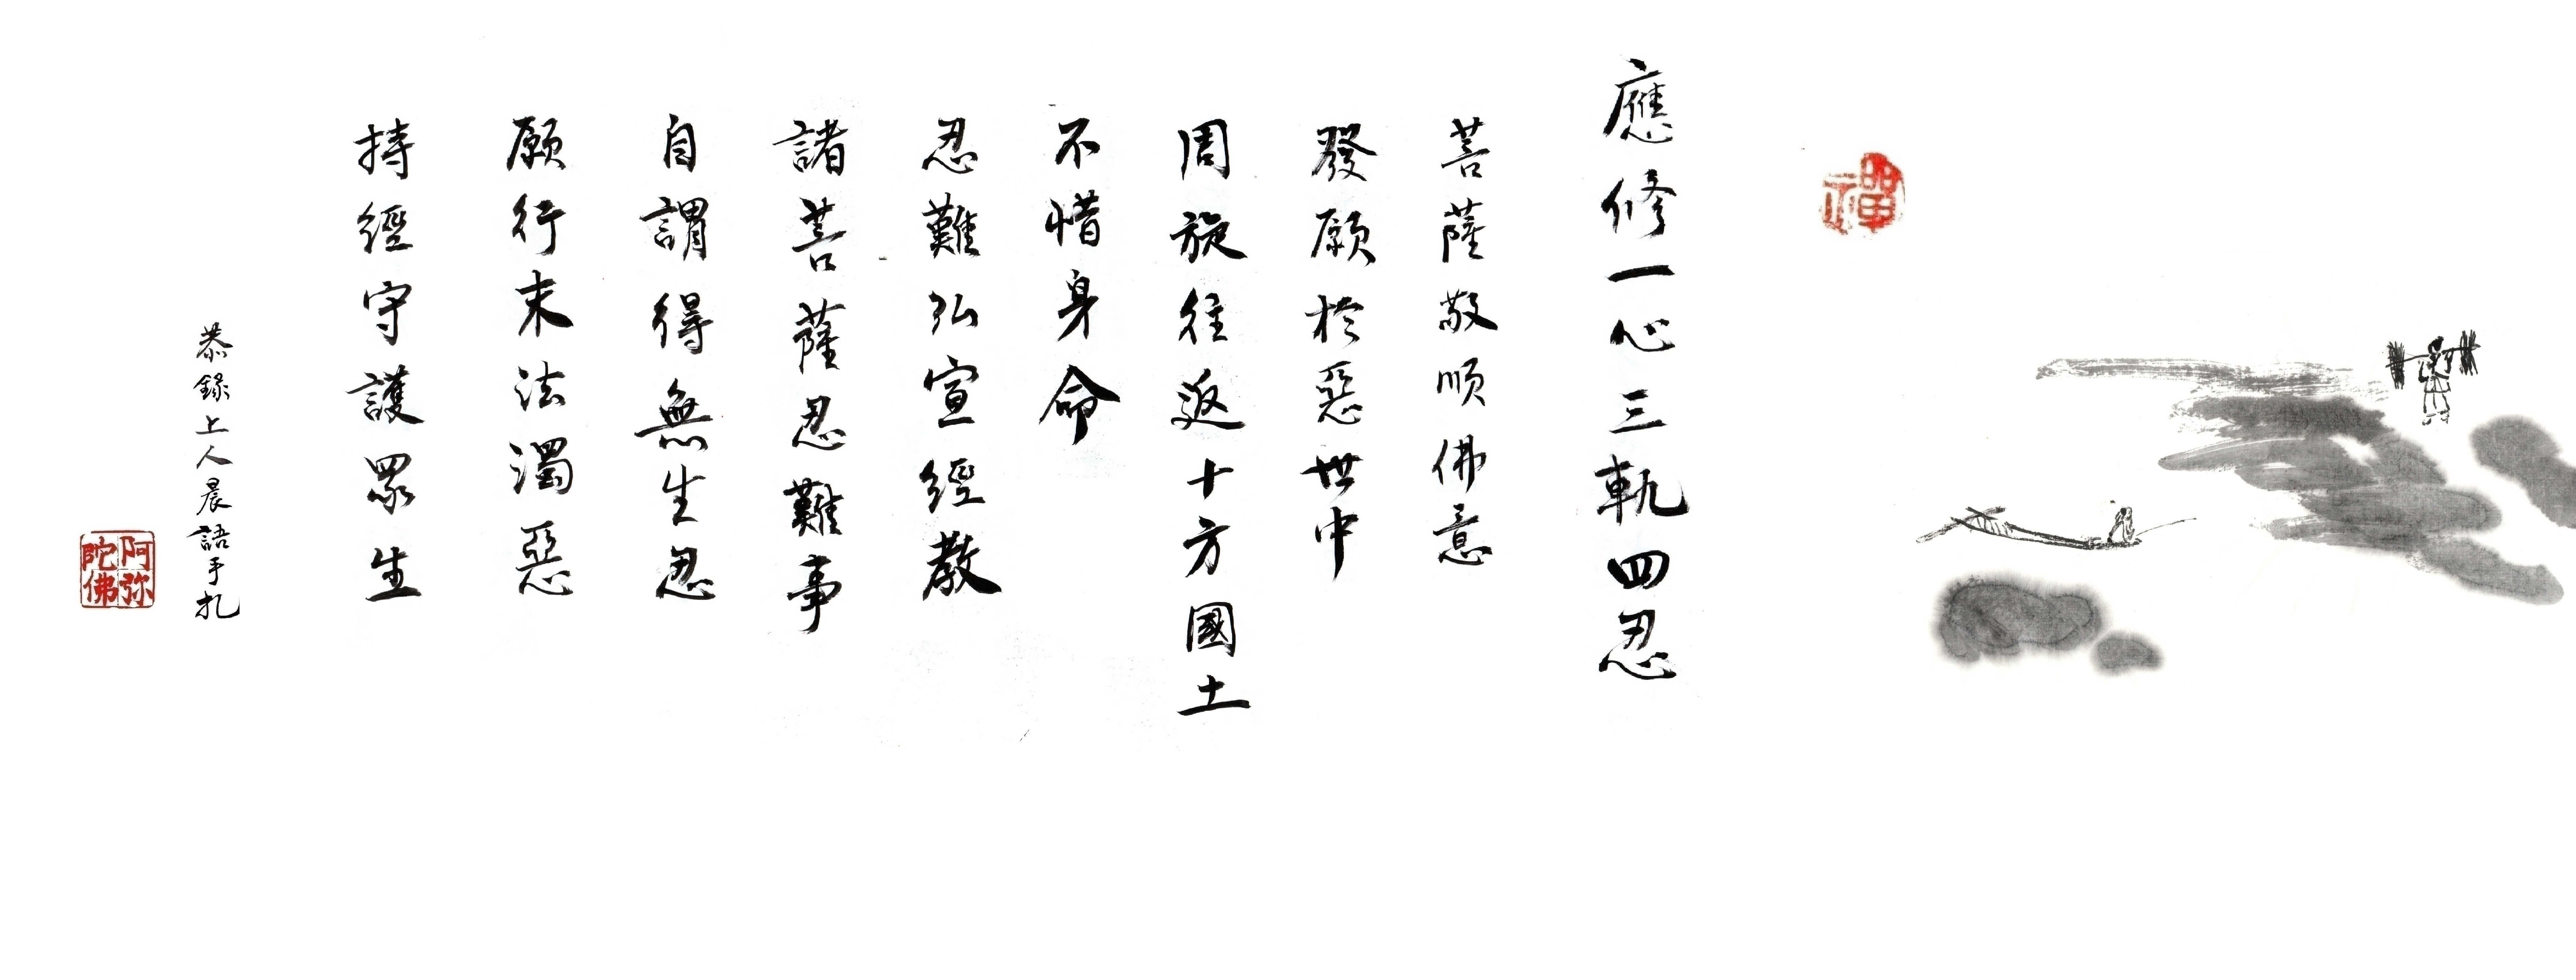 禪
應修一心三軌四忍
菩薩敬順佛意
發願於惡世中
周旋往返十方國土
不惜身命
忍難弘宣經教
諸菩薩忍難事
自謂得無生忍
願行末法濁惡
持經守護眾生
恭錄上人晨語手扎
阿弥陀佛